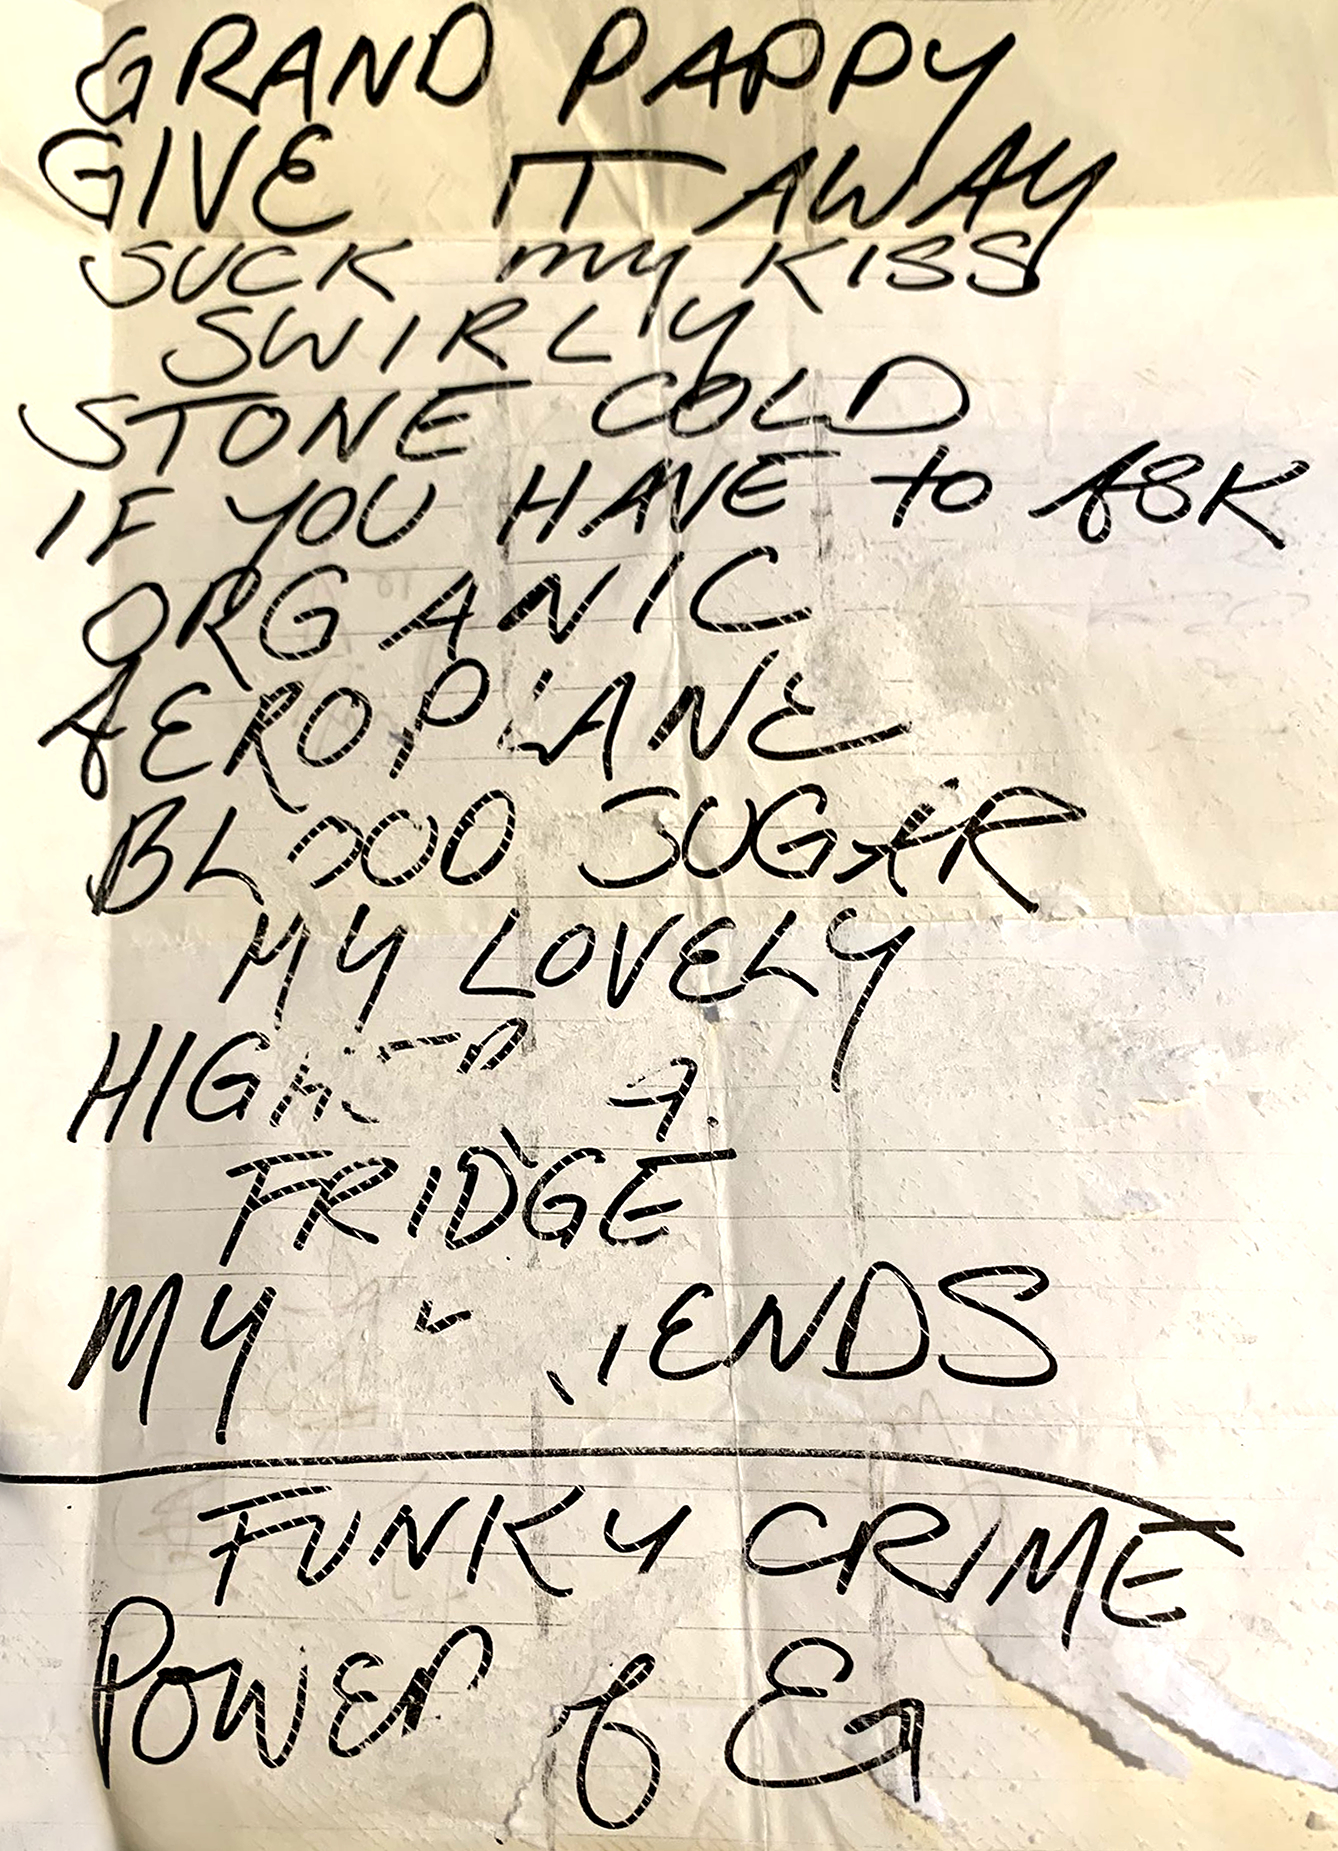 GRAND PAPPY
GIVE IT AWAY
SUCK MY KISS
SWIRLY
STONE COLD
IF YOU HAVE TO ASK
ORGANIC
AEROPLANE
BLOOD SUGAR
MY LOVELY
FRIDGE
MY
FUNKY CRIME
POWER OF EQ